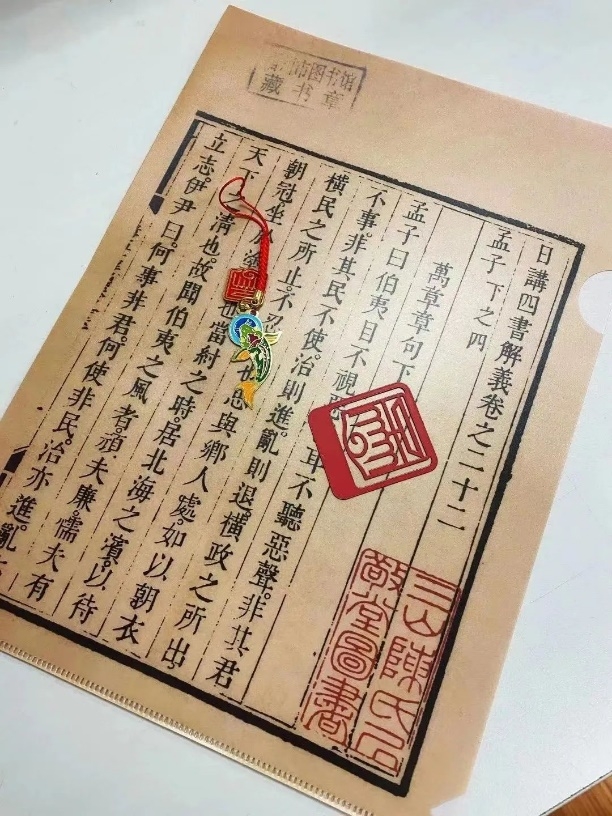 市图书馆
藏书章
日講四書解義卷之二十二
孟子 下之四
萬章章句下
孟子曰伯夷目不視 耳不聽惡聲。非其君
不事。非其民不使。治則進。亂則退。橫政之所出
橫民之所止。不忍 也。思與鄉人處。如以朝衣
朝冠坐 也。當紂之時。居北海之濱。以待
天下之清也。故聞伯夷之風者。頑夫廉。懦夫有
立志。伊尹曰。何事非君。何使非民。治亦進。亂
三山陳氏居
敬堂圖書